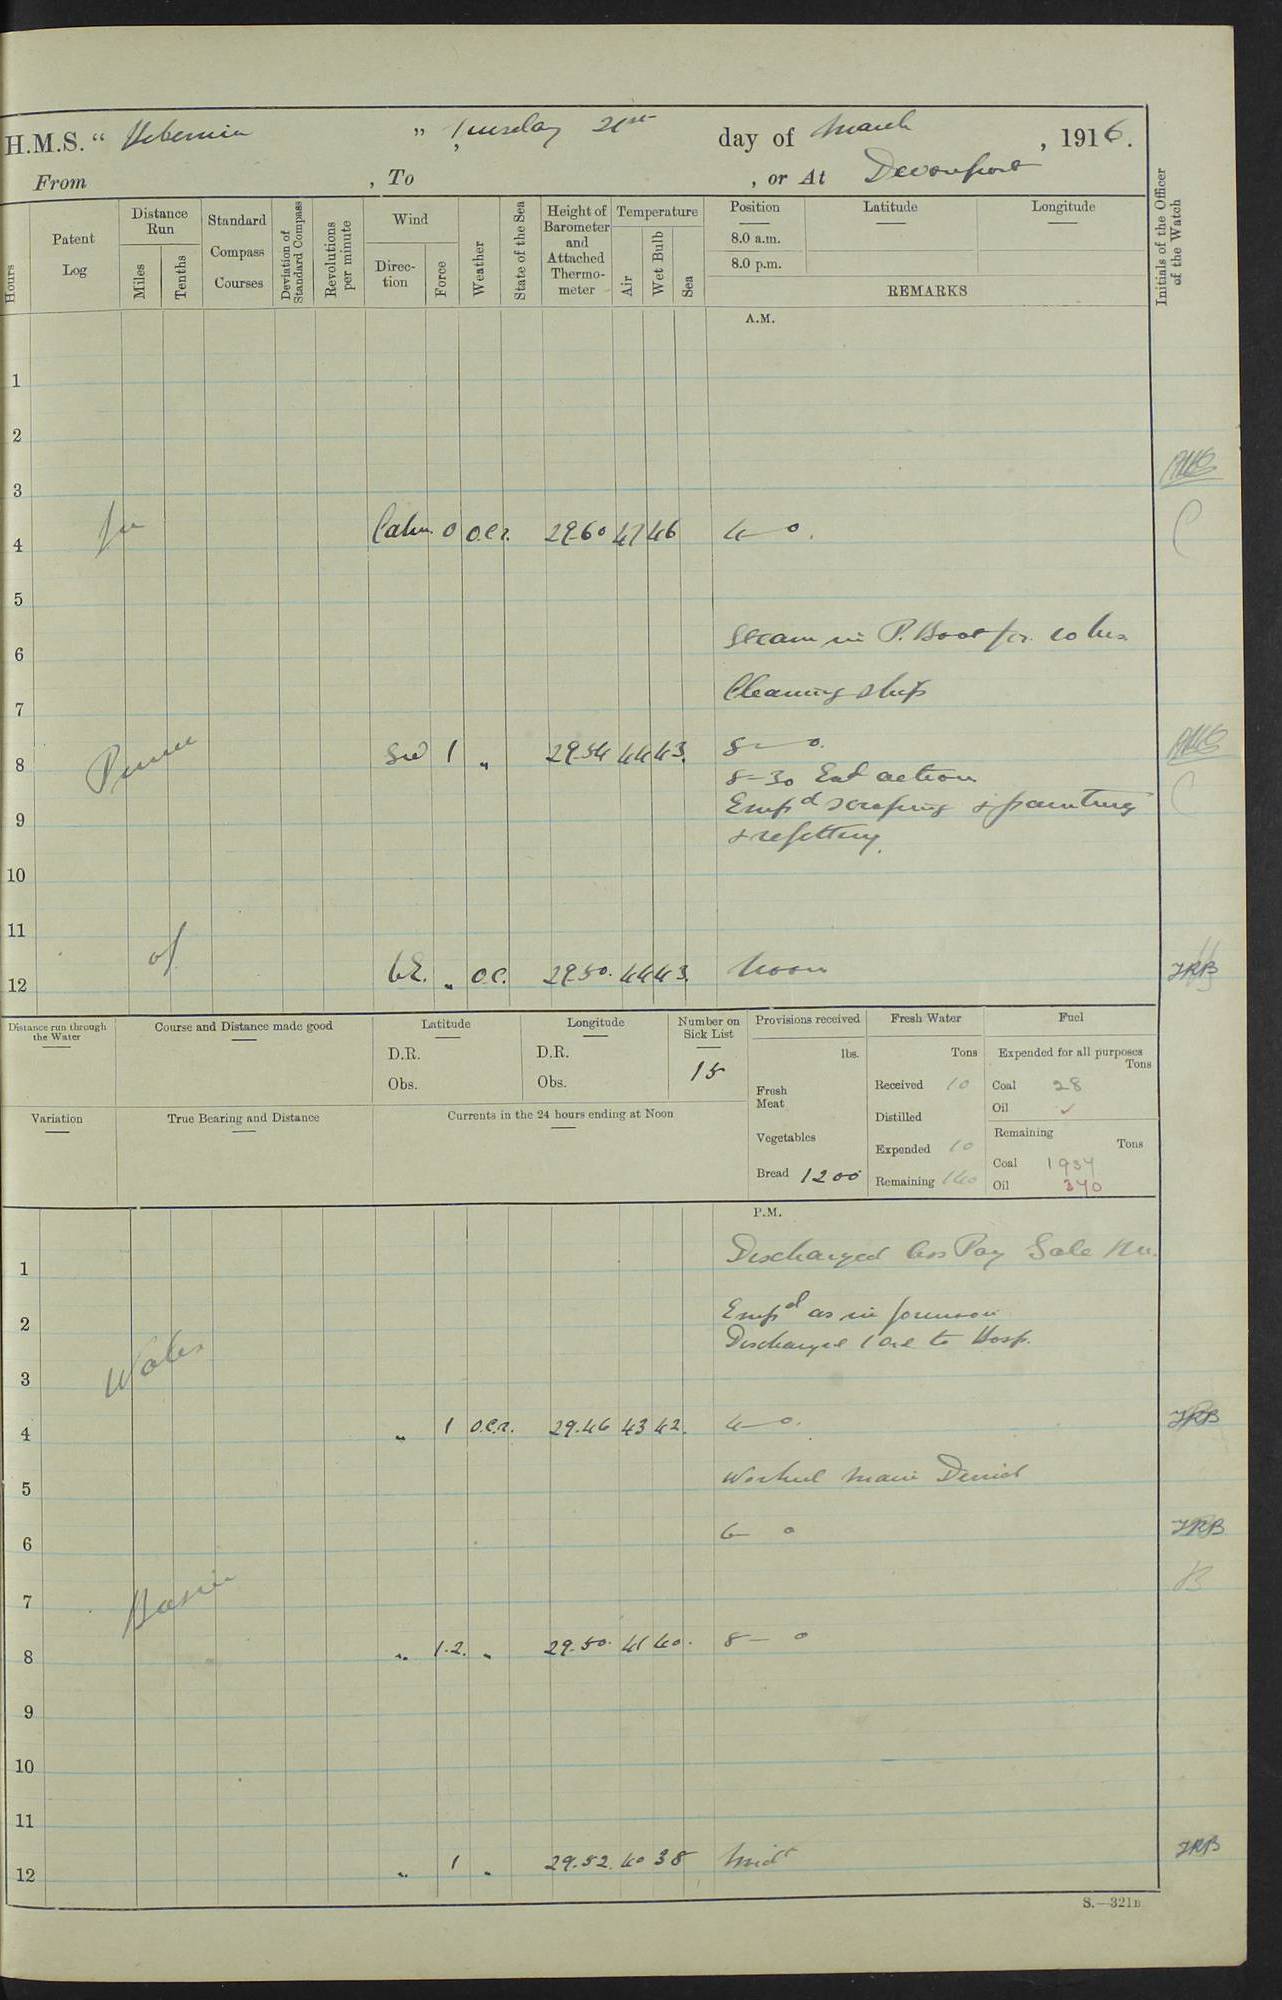 H.M.S. “ Hibernia ” , Tuesday 21st day of March , 1916.
From , To , or At Devonport
Hours
Patent Log
Distance Run
Miles
Tenths
Standard Compass Courses
Deviation of Standard Compass
Revolutions per minute
Wind
Direction
Force
Weather
State of the Sea
Height of Barometer and Attached Thermometer
Temperature
Air
Wet Bulb
Sea
Position
8.0 a.m.
8.0 p.m.
Latitude
Longitude
REMARKS
Initials of the Officer of the Watch
A.M.
1
2
3
In
4 Calm 0 o.c.r. 29.60 47 46 4—0.
5
Steam in P. Boat for 10 hrs
6
Cleaning ship
7
Prince
8 SW 1 „ 29.54 44 43. 8—0.
8-30
Empd scraping & painting
9
& refitting.
10
11
of
12 „ o.c. 29.50. 44 43. Noon JRB
Distance run through the Water
Course and Distance made good
Latitude
D.R.
Obs.
Longitude
D.R.
Obs.
Number on Sick List
15
Provisions received
lbs.
Fresh Meat
Vegetables
Bread 1200
Fresh Water
Tons
Received 10
Distilled
Expended 10
Remaining 140
Fuel
Expended for all purposes
Tons
Coal 28
Oil ✓
Remaining
Tons
Coal 1937
Oil 370
Variation
True Bearing and Distance
Currents in the 24 hours ending at Noon
P.M.
Discharged Ass Pay
1
2 Empd as in forenoon
Discharged 1 to Hosp.
Wales
3
4 „ 1 o.c.r. 29.46 43 42. 4—0. JRB
5
6 6— 0 JRB
Basin
7
8 „ 1.2. „ 29.50. 41 40. 8— 0
9
10
11
12 „ 1 „ 29.52. 40 38 Midt JRB
S.—321B